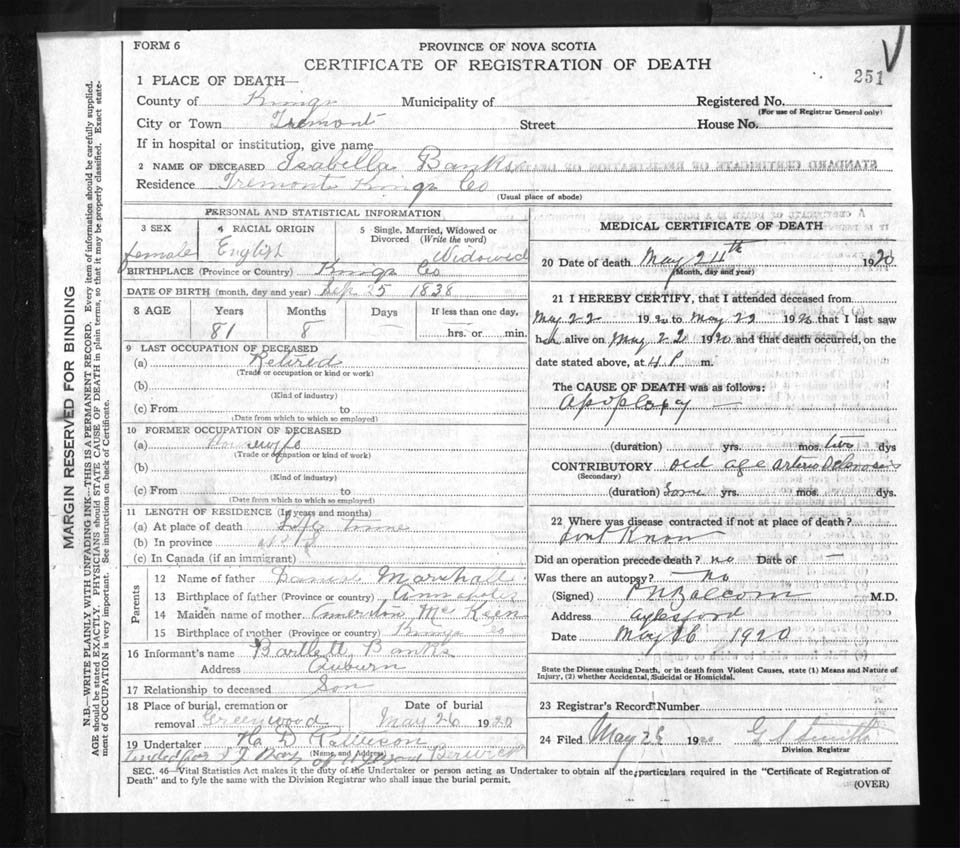 FORM 6
PROVINCE OF NOVA SCOTIA
CERTIFICATE OF REGISTRATION OF DEATH
251
1 PLACE OF DEATH—
County of Kings Municipality of Registered No.
(For use of Registrar General only)
City or Town Tremont Street House No.
If in hospital or institution, give name
2 NAME OF DECEASED Isabella Banks
Residence Tremont Kings Co
(Usual place of abode)
PERSONAL AND STATISTICAL INFORMATION
3 SEX 4 RACIAL ORIGIN 5 Single, Married, Widowed or Divorced (Write the word)
female English Widowed
BIRTHPLACE (Province or Country) Kings Co
DATE OF BIRTH (month, day and year) Sep 25 1838
8 AGE Years Months Days If less than one day,
81 8 hrs. or min.
9 LAST OCCUPATION OF DECEASED
(a) Retired
(Trade or occupation or kind or work)
(b)
(Kind of industry)
(c) From to
(Date from which to which so employed)
10 FORMER OCCUPATION OF DECEASED
(a) Housewife
(Trade or occupation or kind of work)
(b)
(Kind of industry)
(c) From to
(Date from which to which so employed)
11 LENGTH OF RESIDENCE (In years and months)
(a) At place of death Life time
(b) In province
(c) In Canada (if an immigrant)
Parents
12 Name of father Daniel Marshall
13 Birthplace of father (Province or country) Annapolis
14 Maiden name of mother Mc Keen
15 Birthplace of mother (Province or country) Kings Co
16 Informant's name Bartlett Banks
Address Auburn
17 Relationship to deceased Son
18 Place of burial, cremation or removal Greenwood
Date of burial
May 26 1920
19 Undertaker H D
(Name, and Address)
Berwick
MEDICAL CERTIFICATE OF DEATH
20 Date of death May 24th 1920
(Month, day and year)
21 I HEREBY CERTIFY, that I attended deceased from
May 22 1920 to May 22 1920 that I last saw
her alive on May 22 1920 and that death occurred, on the
date stated above, at 4 P m.
The CAUSE OF DEATH was as follows:
apoplexy —
(duration) yrs. mos. two dys
CONTRIBUTORY old age arterio Sclerosis
(Secondary)
(duration) Some yrs. mos. dys.
22 Where was disease contracted if not at place of death?
Dont Know
Did an operation precede death? no Date of —
Was there an autopsy? no
(Signed) Balcom M.D.
Address Aylesford
Date May 26 1920
State the Disease causing Death, or in death from Violent Causes, state (1) Means and Nature of
Injury, (2) whether Accidental, Suicidal or Homicidal.
23 Registrar's Record Number
24 Filed May 28 1920 G S Smith
Division Registrar
SEC. 46—Vital Statistics Act makes it the duty of the Undertaker or person acting as Undertaker to obtain all the particulars required in the "Certificate of Registration of
Death" and to fyle the same with the Division Registrar who shall issue the burial permit.
(OVER)
MARGIN RESERVED FOR BINDING
N.B.—WRITE PLAINLY, WITH UNFADING INK—THIS IS A PERMANENT RECORD. Every item of information should be carefully supplied.
AGE should be stated EXACTLY. PHYSICIANS should STATE CAUSE OF DEATH in plain terms, so that it may be properly classified. Exact state-
ment of OCCUPATION is very important. See instructions on back of Certificate.